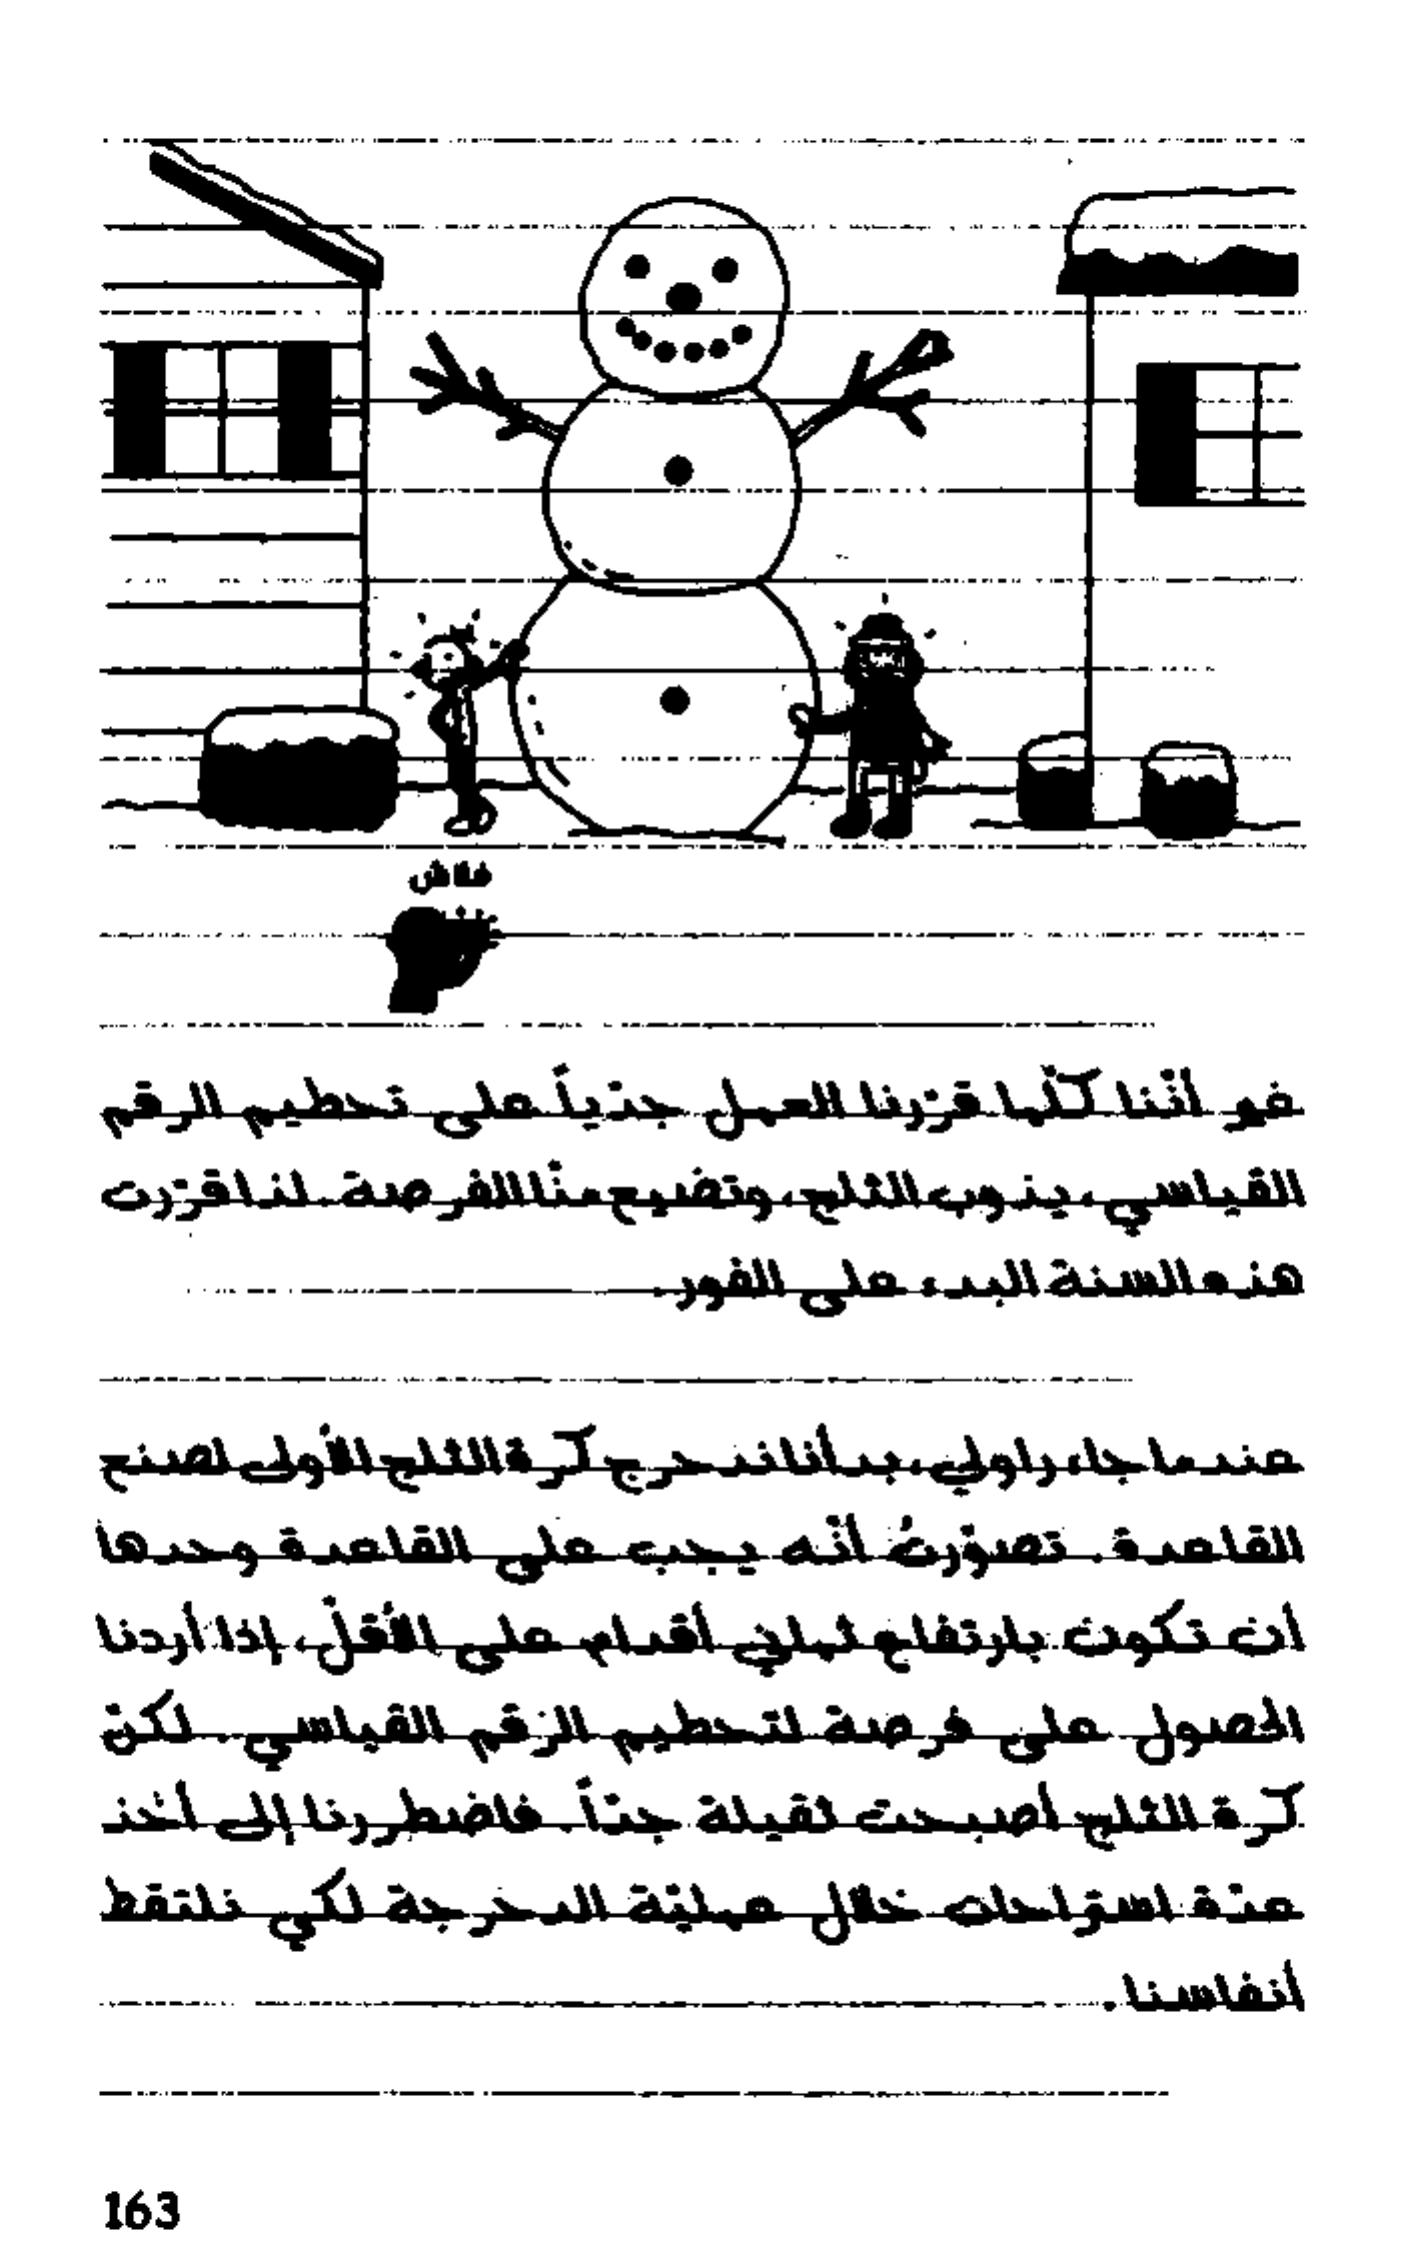 فلاش
فهو أنّنا كلّما قرّرنا العمل جدّياً على تحطيم الرقم
القياسي، يذوب الثلج، وتضيع منّا الفرصة. لذا قرّرت
هذه السنة البدء على الفور.
عندما جاء راولي، بدأنا ندحرج كرة الثلج الأولى لصنع
القاعدة. تصوّرتُ أنّه يجب على القاعدة وحدها
أن تكون بارتفاع ثماني أقدام على الأقلّ، إذا أردنا
الحصول على فرصة لتحطيم الرقم القياسي. لكنّ
كرة الثلج أصبحت ثقيلة جدّاً. فاضطررنا إلى أخذ
عدّة استراحات خلال عمليّة الدحرجة لكي نلتقط
أنفاسنا.
163